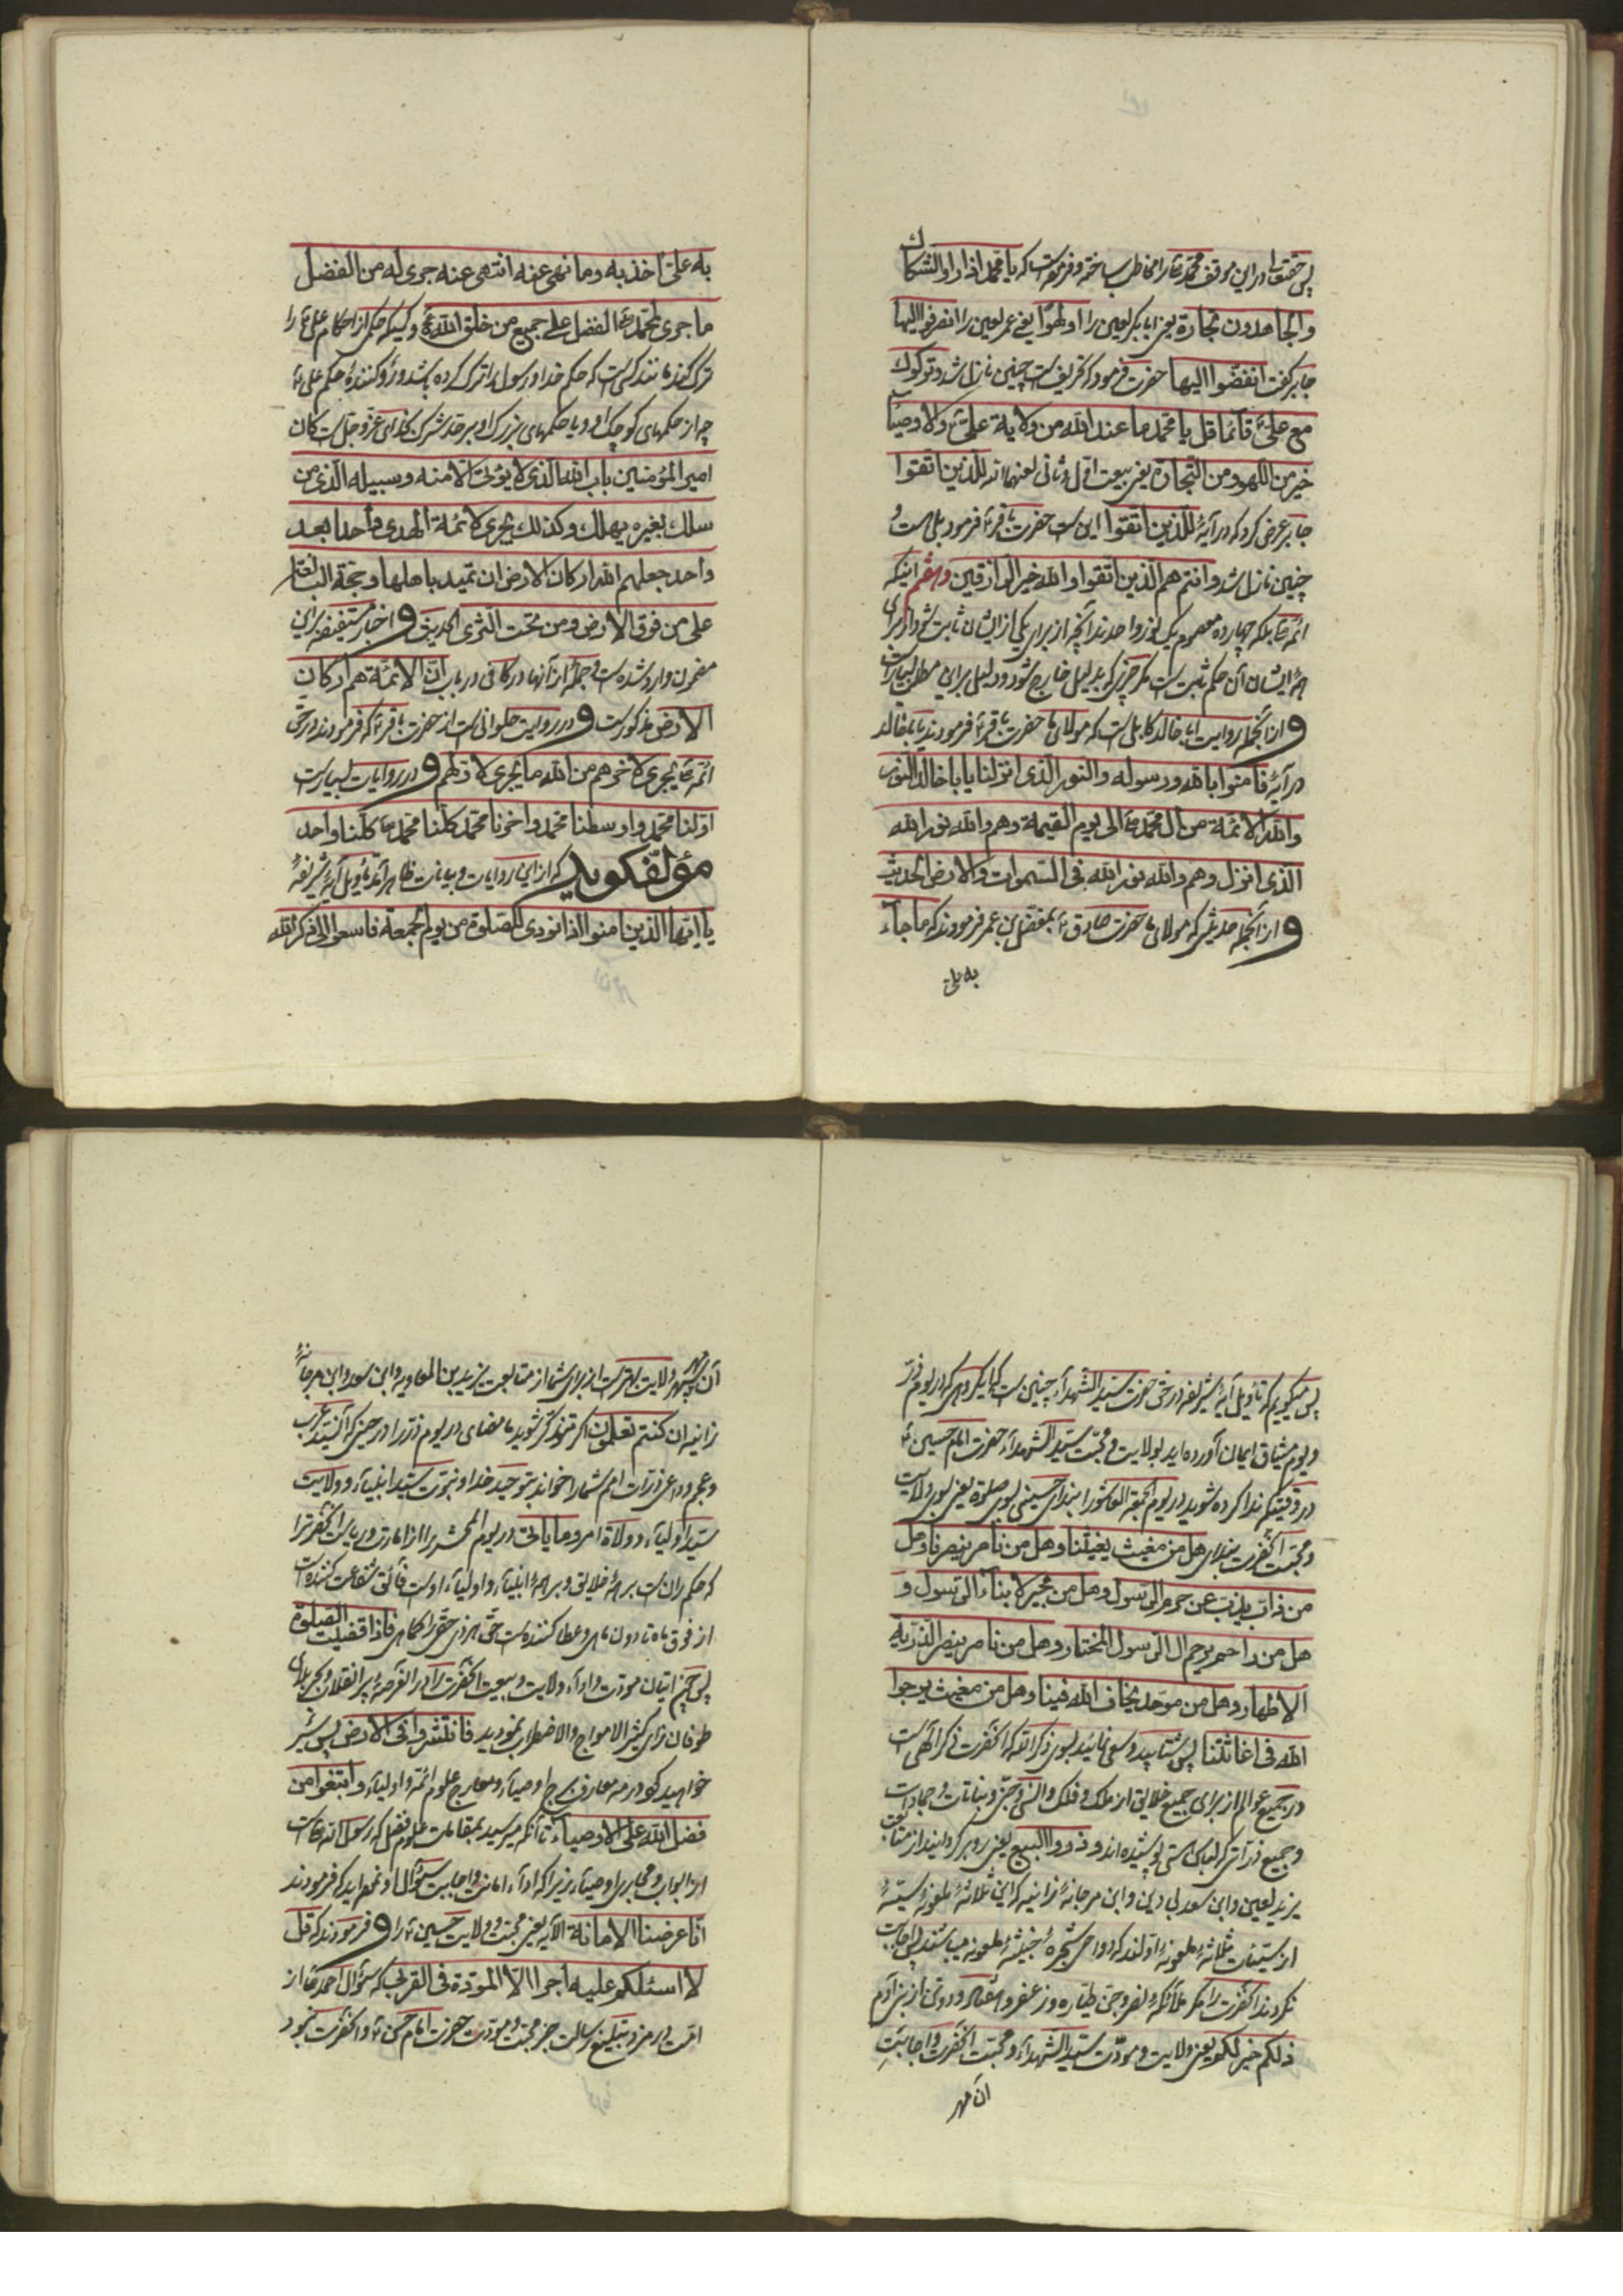 پس حقتعالی در این موقف محمد ص را مخاطب ساخته و فرموده است که یا محمد اذا راوا الشکاک
والجاهدون تجارة یعنی ابابکر لعین را اولهوا یعنی عمر لعین را انصرفوا الیها
جابر گفت انفضوا الیها حضرت فرمود که تحریف است چنین نازل شد و ترکوک
مع علیّ قائما قل یا محمد ما عند الله من ولایة علیّ ولا وصیا
خیر من اللهو ومن التجارة یعنی بیعت اول و ثانی لعنهما الله للذین اتقوا
جابر عرض کرد که در آیه للذین اتقوا این است حضرت باقر ع فرمود بلی هست و
چنین نازل شد و انتم هم الذین اتقوا والله خیر الرازقین وهفتم اینکه
ائمه ع بلکه چهارده معصوم یک نور واحدند آنچه از برای یکی از ایشان ثابت شود از برای
همه ایشان آن حکم ثابت است مگر چیزی که بدلیل خارج شود و دلیل بر این مطلب بسیار است
و از آنجمله روایت ابا خالد کابلی است که مولای ما حضرت باقر ع فرمودند یا ابا خالد
در آیه فامنوا بالله ورسوله والنور الذی انزلنا یا ابا خالد النور
والله الائمة من آل محمد ص الی یوم القیمة وهم والله نور الله
الذی انزل وهم والله نور الله فی السموات والارض الحدیث
و از آنجمله حدیثی که مولای ما حضرت صادق ع بمفضل بن عمر فرمودند که ما جاء
به علی
به علیّ اخذ به وما نهی عنه انتهی عنه جری له من الفضل
ما جری لمحمد ص الفضل علی جمیع من خلق الله ع و کسیکه حکمی از احکام علی ع را
ترک کند مانند کسی است که حکم خدا و رسول را ترک کرده باشد و رد کننده حکم علی ع
چه از حکمهای کوچک او و یا حکمهای بزرک او بر حد شرک بخدای عزوجل است کان
امیر المؤمنین باب الله الذی لا یؤتی الا منه وسبیله الذی من
سلک بغیره یهلک وکذلک یجری لائمة الهدی واحدا بعد
واحد جعلهم الله ارکان الارض ان تمید باهلها وحجة البالغة
علی من فوق الارض ومن تحت الثری الحدیث و اخبار مستفیضه بر این
مضمون وارد شده است و جمله از آنها در کافی در باب ان الائمة هم ارکان
الارض مذکور است و در روایت حلوانی است از حضرت باقر ع که فرمودند در حق
ائمه ع یجری لاخرهم من الله ما یجری لاولهم و در روایات بسیار است
اولنا محمد واوسطنا محمد واخرنا محمد کلنا محمد ص کلنا واحد
مؤلف گوید که از این روایات و بیانات ظاهر آمد تاویل آیه شریفه
یا ایها الذین امنوا اذا نودی للصلوة من یوم الجمعة فاسعوا الی ذکر الله
پس میگویم که تاویل آیه شریفه در حق حضرت سید الشهداء چنین است که ای کروهی که در یوم ذر
و یوم میثاق ایمان آورده اید بولایت و محبت سید الشهداء حضرت امام حسین ع
در وقتیکه ندا کرده شوید در یوم الجمعة العاشورا بندای حسینی بسوی صلوة یعنی بسوی ولایت
و محبت آنحضرت بندای هل من مغیث یغیثنا وهل من ناصر ینصرنا وهل
من ذاب یذب عن حرم الرسول وهل من مجیر لابناء الرسول و
هل من راحم یرحم ال الرسول المختار وهل من ناصر ینصر الذریة
الاطهار وهل من موحد یخاف الله فینا وهل من مغیث یرجوا
الله فی اغاثتنا پس بشتابید و سعی نمائید بسوی ذکر الله که آنحضرت ذکر الهی است
در جمیع عوالم از برای جمیع خلایق از ملک و فلک و انس و جن و نباتات و جمادات
و جمیع ذراتی که لباس هستی پوشیده اند و ذروا البیع یعنی رو بر گردانید از متابعت
یزید لعین و ابن سعد بی دین و ابن مرجانه زانیه که این ثلاثه ملعونه سیئه
از سیئات ثلاثه ملعونه اولند که دواحی شجره خبیثه ملعونه میباشند پس اجابت
نکردند آنحضرت را مگر ملائکه نصر و جن طیاره وزعفر و هفتاد و دو تن از بنی آدم
ذلکم خیر لکم یعنی ولایت و مودت سید الشهداء و محبت آنحضرت و اجابت
آن مهر
آن مهر سپهر ولایت بهتر است از برای شما از متابعت یزید بن المعاویه و ابن سعد و ابن مرجانه
زانیه ان کنتم تعلمون اگر متذکر شوید ما مضای در یوم ذر را در حینی که سید عرب
و عجم و داعی ذرات امم شما را خواند بتوحید خدا و بنبوت سید انبیاء و ولایت
سید اولیاء و ولاة امر و ما یاتی در یوم المحشر را از امارت و ریاست آنحضرت را
که حکمران است بر همه خلایق و بر همه انبیاء و اولیاء اوست فائق شفاعت کننده است
از فوق ماه تا دون ماهی و عطا کننده است حق هر ذی حقی را کماهی فاذا قضیت الصلوة
پس چون اتیان مودت و اداء ولایت و بیعت آنحضرت را در این عرصه پر انقلاب و بحر بلای
طوفان زای کثیر الامواج والاضطراب نمودید فانتشروا فی الارض پس سیر
خواهید نمود در معارف بروج اوصیاء و معارج علوم ائمه و اولیاء وابتغوا من
فضل الله علی الاوصیاء تا آنکه میرسید بمقامات علوم فضل که رسول الله ص است
از ابواب و مجاری اوصیاء زیرا که اداء امانت و اجابت سؤال او نموده اید که فرمودند
انا عرضنا الامانة الآیه یعنی محبت و ولایت حسین ع را و فرمودند که قل
لا اسئلکم علیه اجرا الا المودة فی القربی که سؤال احمد ص از
امت در مزد تبلیغ رسالت جز محبت و مودت حضرت امام حسین ع و آنحضرت نبود